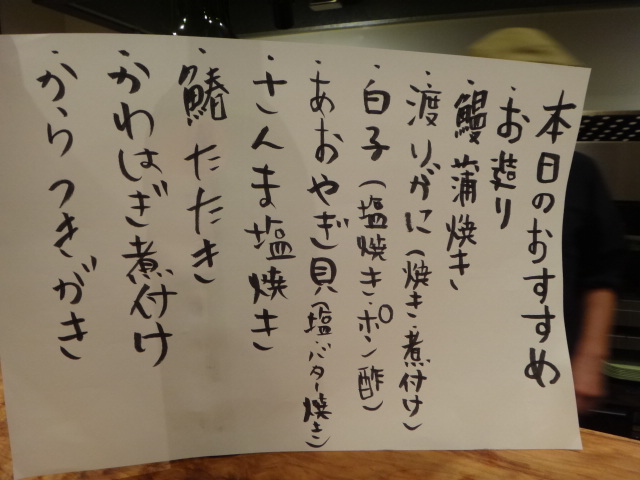 本日のおすすめ
・お造り
・鰻蒲焼き
・渡りがに(焼き・煮付け)
・白子(塩焼き・ポン酢)
・あおやぎ貝(塩・バター焼き)
・さんま塩焼き
・鰆たたき
・かわはぎ煮付け
・からつきがき